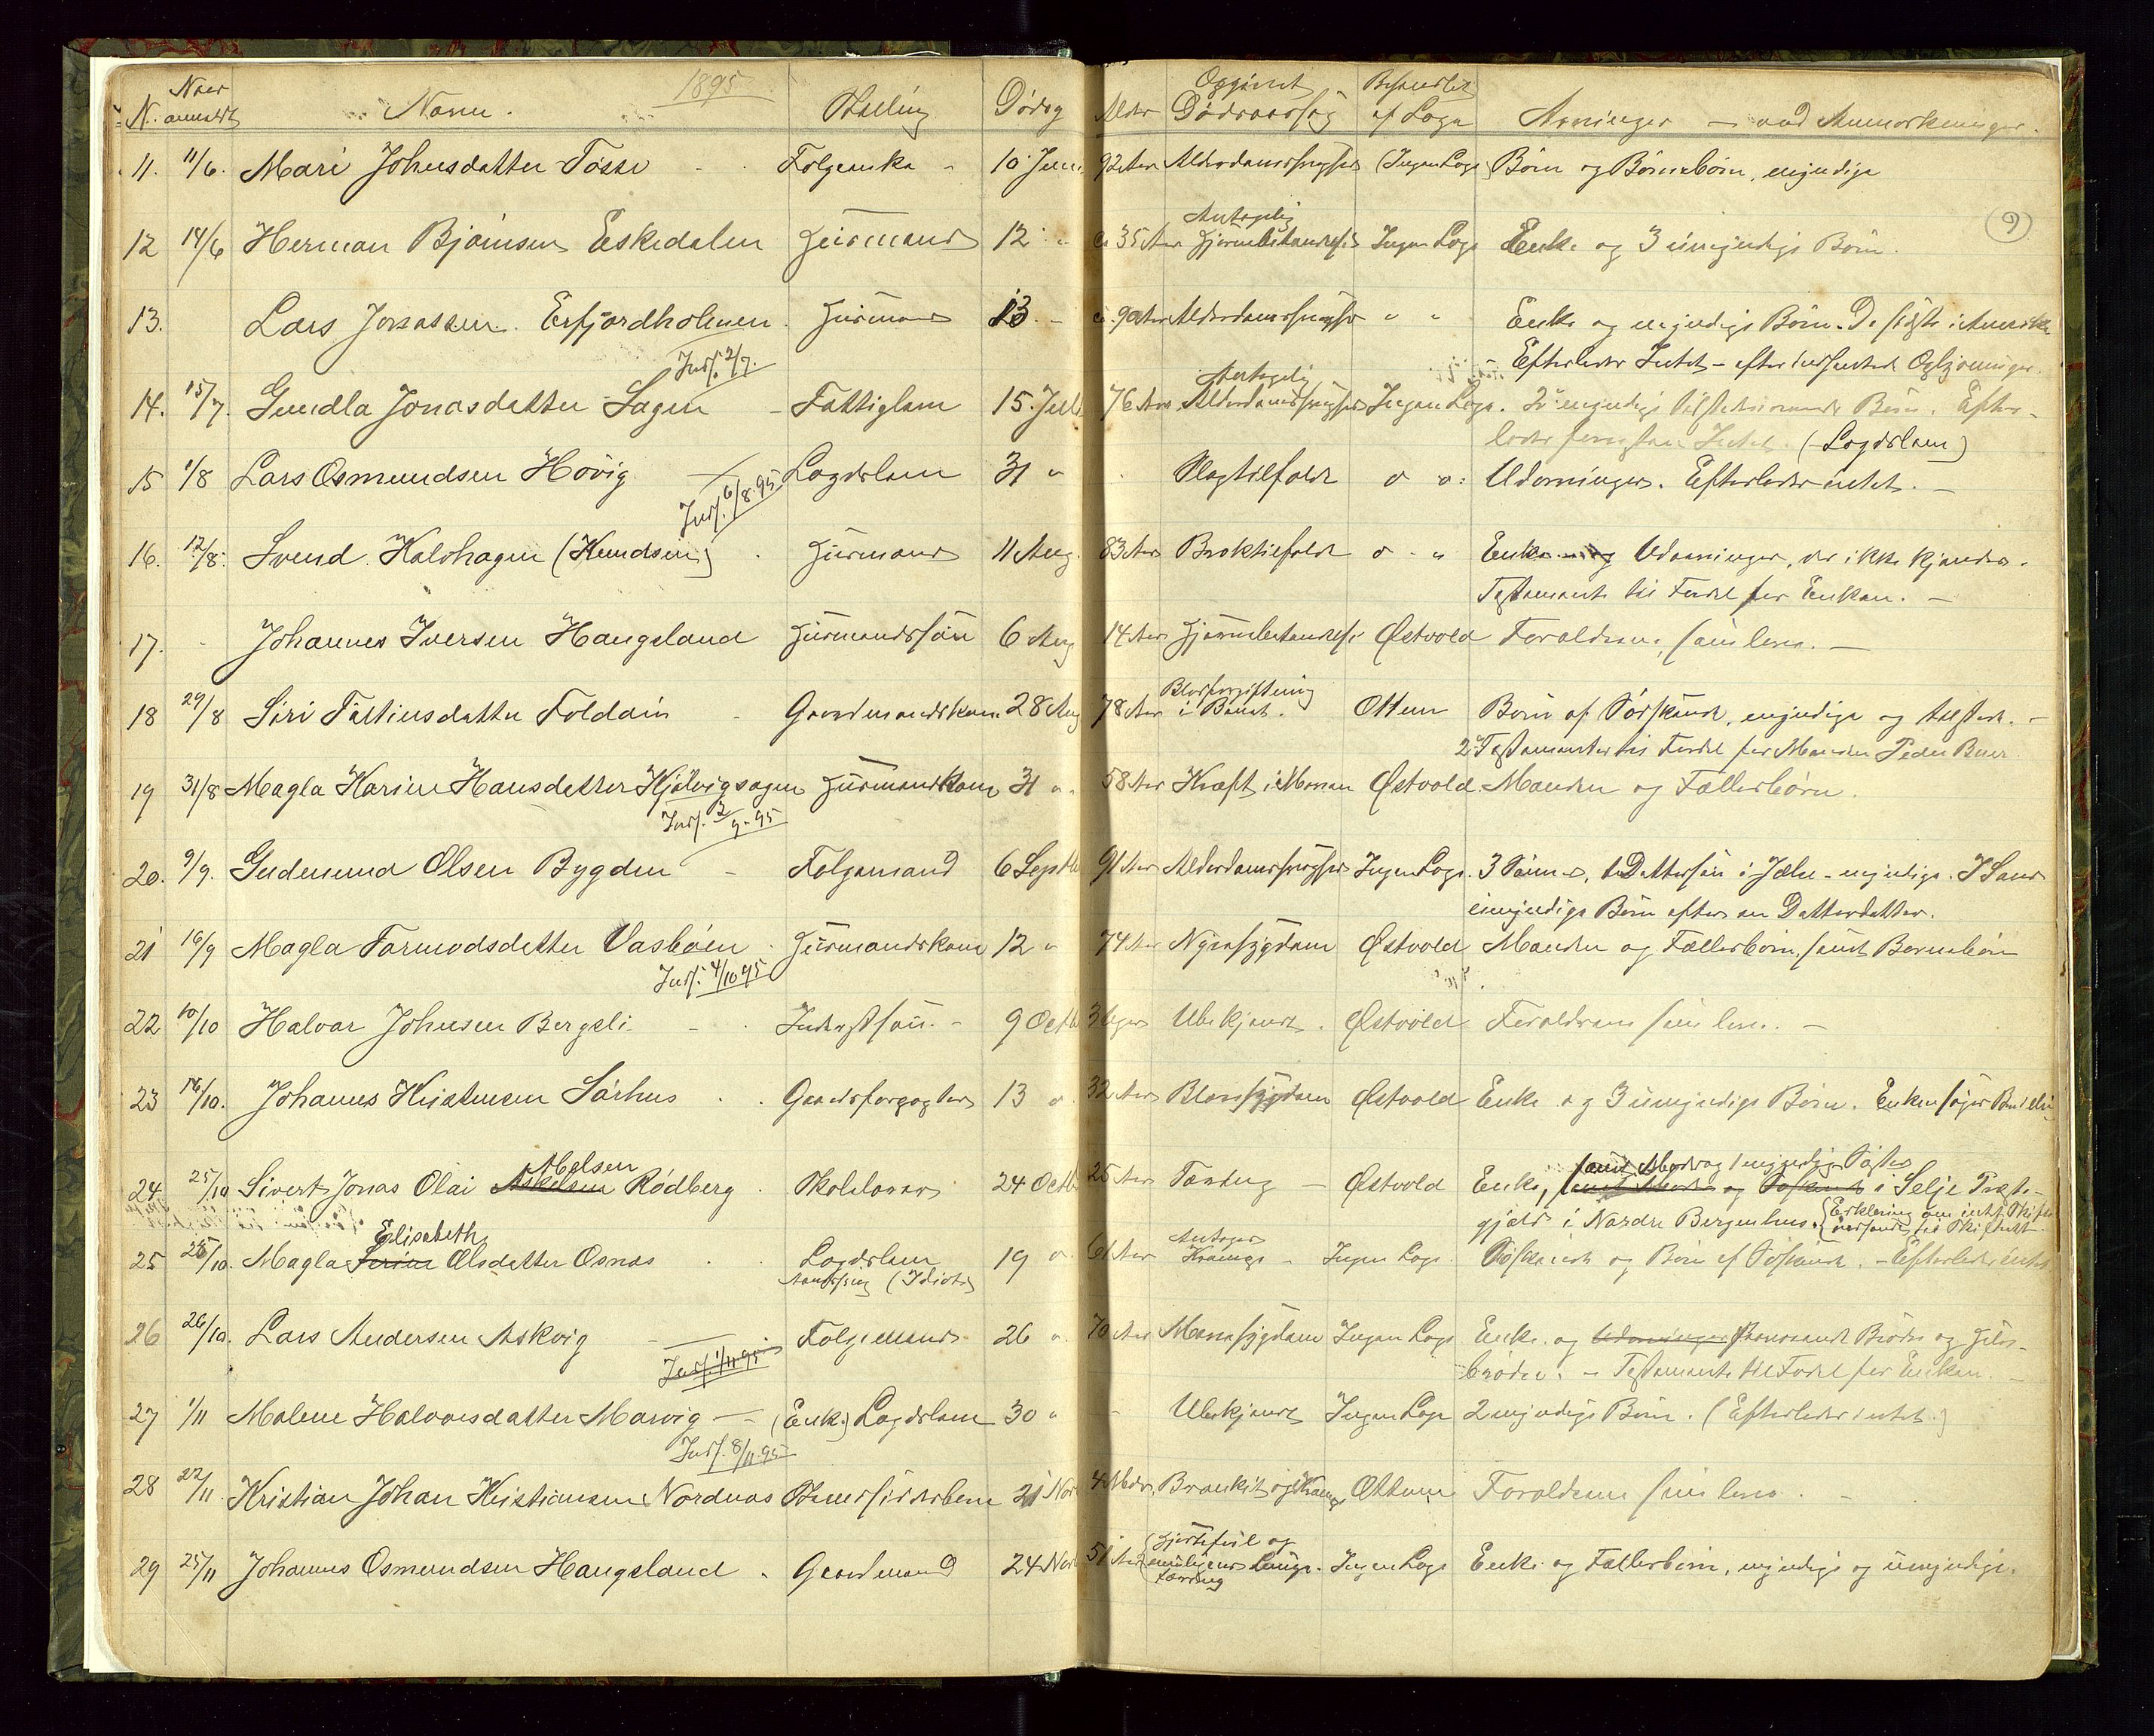 1895
N. Naar anmeldt Navn. Stilling Dødsdag Alder Opgivet Dødsaarsag Behandlet af Læge Arvinger – med Anmerkninger.
9
11. 11/6. Mari Johnsdatter Tøsse Folgeenke 10 Juni 92 Aar Alderdomssvaghed (Ingen Læge) Børn og Børnebørn, myndige
Antagelig
12 14/6 Herman Bjørnsen Eskedalen Huusmand 12 " ca 35 Aar Hjernebetændelse Ingen Læge Enke og 3 umyndige Børn.
13. Lars Jonassen Erfjordholmen. Huusmand 13 – ca. 90 Aar Alderdomssvaghed " " Enke og myndige Børn. De fleste i Amerika
Indf. 2/7. Efterlader Intet – efter indhentede Oplysninger.
Antagelig
14. 15/7. Gundla Jonasdatter Sagen – Fattiglem 15. Juli 76 Aar Alderdomssvaghed Ingen Læge. 2 myndige Børn. Efter-
lader Intet. (Lægdslem)
15 1/8 Lars Osmundsen Høvig – Lægdslem 31 " Slagtilfælde " " Udarvinger. Efterlader intet. –
Indf. 6/8.95
16. 12/8. Svend Kalvhagen (Knudsen) Huusmand 11 Aug. 83 Aar Broktilfælde " " Enke og Udarvinger, der ikke kjendes.
Testamente til Fordel for Enken. –
17. Johannes Iversen Haugsland Huusmandssøn 6 Aug 14 Aar Hjernebetændelse Østvold Forældrene, som leve. –
Blodforgiftning
18 29/8 Siri Tastinsdatter Foldøin – Gaardmandskone 28 Aug 78 Aar i Benet. Ottem Børn af Søskende, myndige og tilstede. –
2 Testamenter til Fordel for Manden Peder Buer
19 31/8 Magla Karine Hansdatter Hjølvigsagen Huusmandskone 31 " 58 Aar Kræft i Maven Østvold Manden og Fællesbørn.
Indf. 2/9-95
20. 9/9. Gudmund Olsen Bygden – Folgemand 6 Septbr 91 Aar Alderdomssvaghed Ingen Læge. 3 Sønner, 1 Dattersøn i Jelse – myndige. I Sand
umyndige Børn efter en Datterdatter.
21 16/9 Magla Tormodsdatter Vasbøen Huusmandskone 12 " 74 Aar Nyresygdom Østvold Manden og Fællesbørn samt Børnebørn
Indf. 4/10 95
22 10/10 Halvor Johnsen Bergeli – Inderstsøn. – 9 Octbr 3 Uger Ubekjendt. Østvold Forældrene som leve. –
23 16/10. Johannes Kristensen Sørhus Gaardsforpagter 13 " 32 Aar Blodsygdom Østvold Enke og 3 umyndige Børn. Enken søger Bevilling
Abelsen samt Moder og 1 myndig Søster
24. 25/10 Sivert Jonas Olai Askelsen Rødberg Skolelærer 24 Octbr 25 Aar Tæring – Østvold Enke, samt Moder og Søskende i Selje Præste-
gjeld i Nordre Bergenhus. Erklæring om intet Skifte
Elisabeth Antagen
25 25/10. Magla Serine Olsdatter Osnes Lægdslem 19 " 61 Aar Krampe – Ingen Læge Søskende og Børn af Søskende. – Efterlader intet
(Idiot)
26 26/10. Lars Andersen Askvig – Folgemand 26 " 70 Aar Mavesygdom Ingen Læge Enke. og Udarvinger Brødre og Halv-
Indf. 1/11 95 brødre. – Testamente til Fordel for Enken. –
27 1/11 Malene Halvorsdatter Marvig – (Enke) Lægdslem 30 " Ubekjendt Ingen Læge 2 myndige Børn. (Efterlader intet.)
Indf. 8/11.95
28 22/11. Kristian Johan Kristiansen Nordnes 21 Nov 4 Mdr. Bronkit og Krampe Ottem Forældrene som leve. –
Hjertefeil og
29 25/11 Johannes Osmundsen Haugsland Gaardmand 24 Nov 51 Aar muligens Lunge- Ingen Læge Enke. og Fællesbørn, myndige og umyndige.
tæring